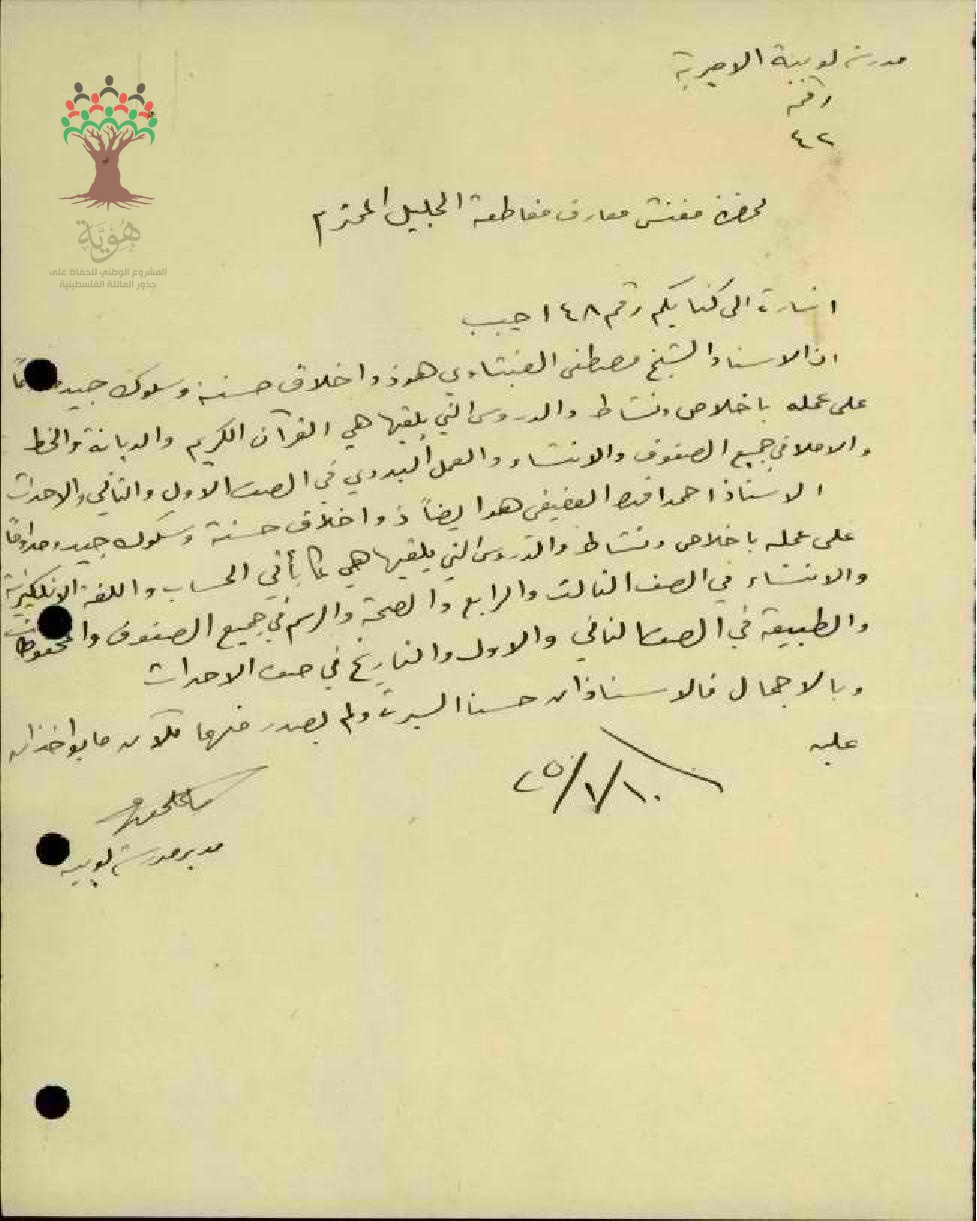 مدرسة لوبية الاميرية
رقم
٤٢
هُوِيَّة
المشروع الوطني للحفاظ على
جذور العائلة الفلسطينية
لحضرة مفتش معارف مقاطعة الجليل المحترم
اشارة الى كتابكم رقم ١٤٨ اجيب
ان الاستاذ الشيخ مصطفى هو ذو اخلاق حسنة وسلوك جيد
على عمله باخلاص ونشاط والدروس التي يلقيها هي القرآن الكريم والديانة والخط
والاملا في جميع الصفوف والانشاء والعمل اليدوي في الصف الاول والثاني والاحداث
الاستاذ احمد افندي العفيفي هو ايضاً ذو اخلاق حسنة وسلوك جيد مداوماً
على عمله باخلاص ونشاط والدروس التي يلقيها هي كما يأتي الحساب واللغة الانكليزية
والانشاء في الصف الثالث والرابع والصحة والرسم في جميع الصفوف والمحفوظات
والطبيعة في الصف الثاني والاول والتاريخ في صف الاحداث
وبالاجمال فالاستاذان حسنا السيرة ولم يصدر منهما للآن ما يؤاخذان
عليه
١٠/١/٢٥
مدير مدرسة لوبيه